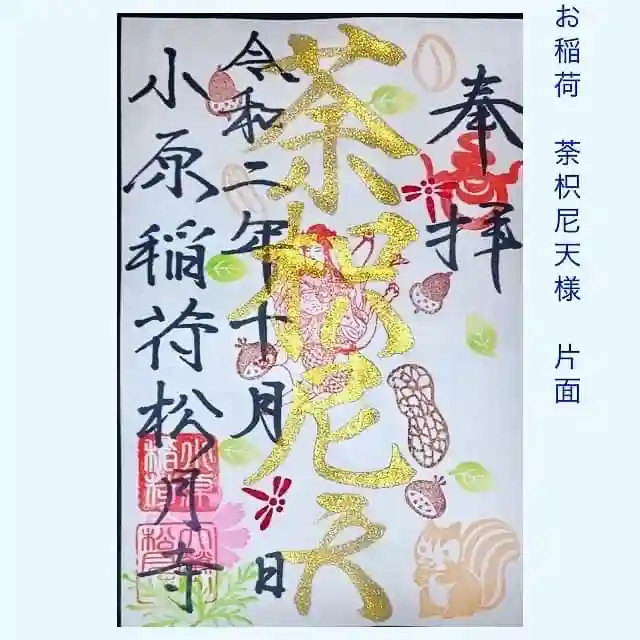 お稲荷 荼枳尼天様 片面
奉拝
荼枳尼天
令和二年十月 日
小原稲荷松月寺
小原
稲荷